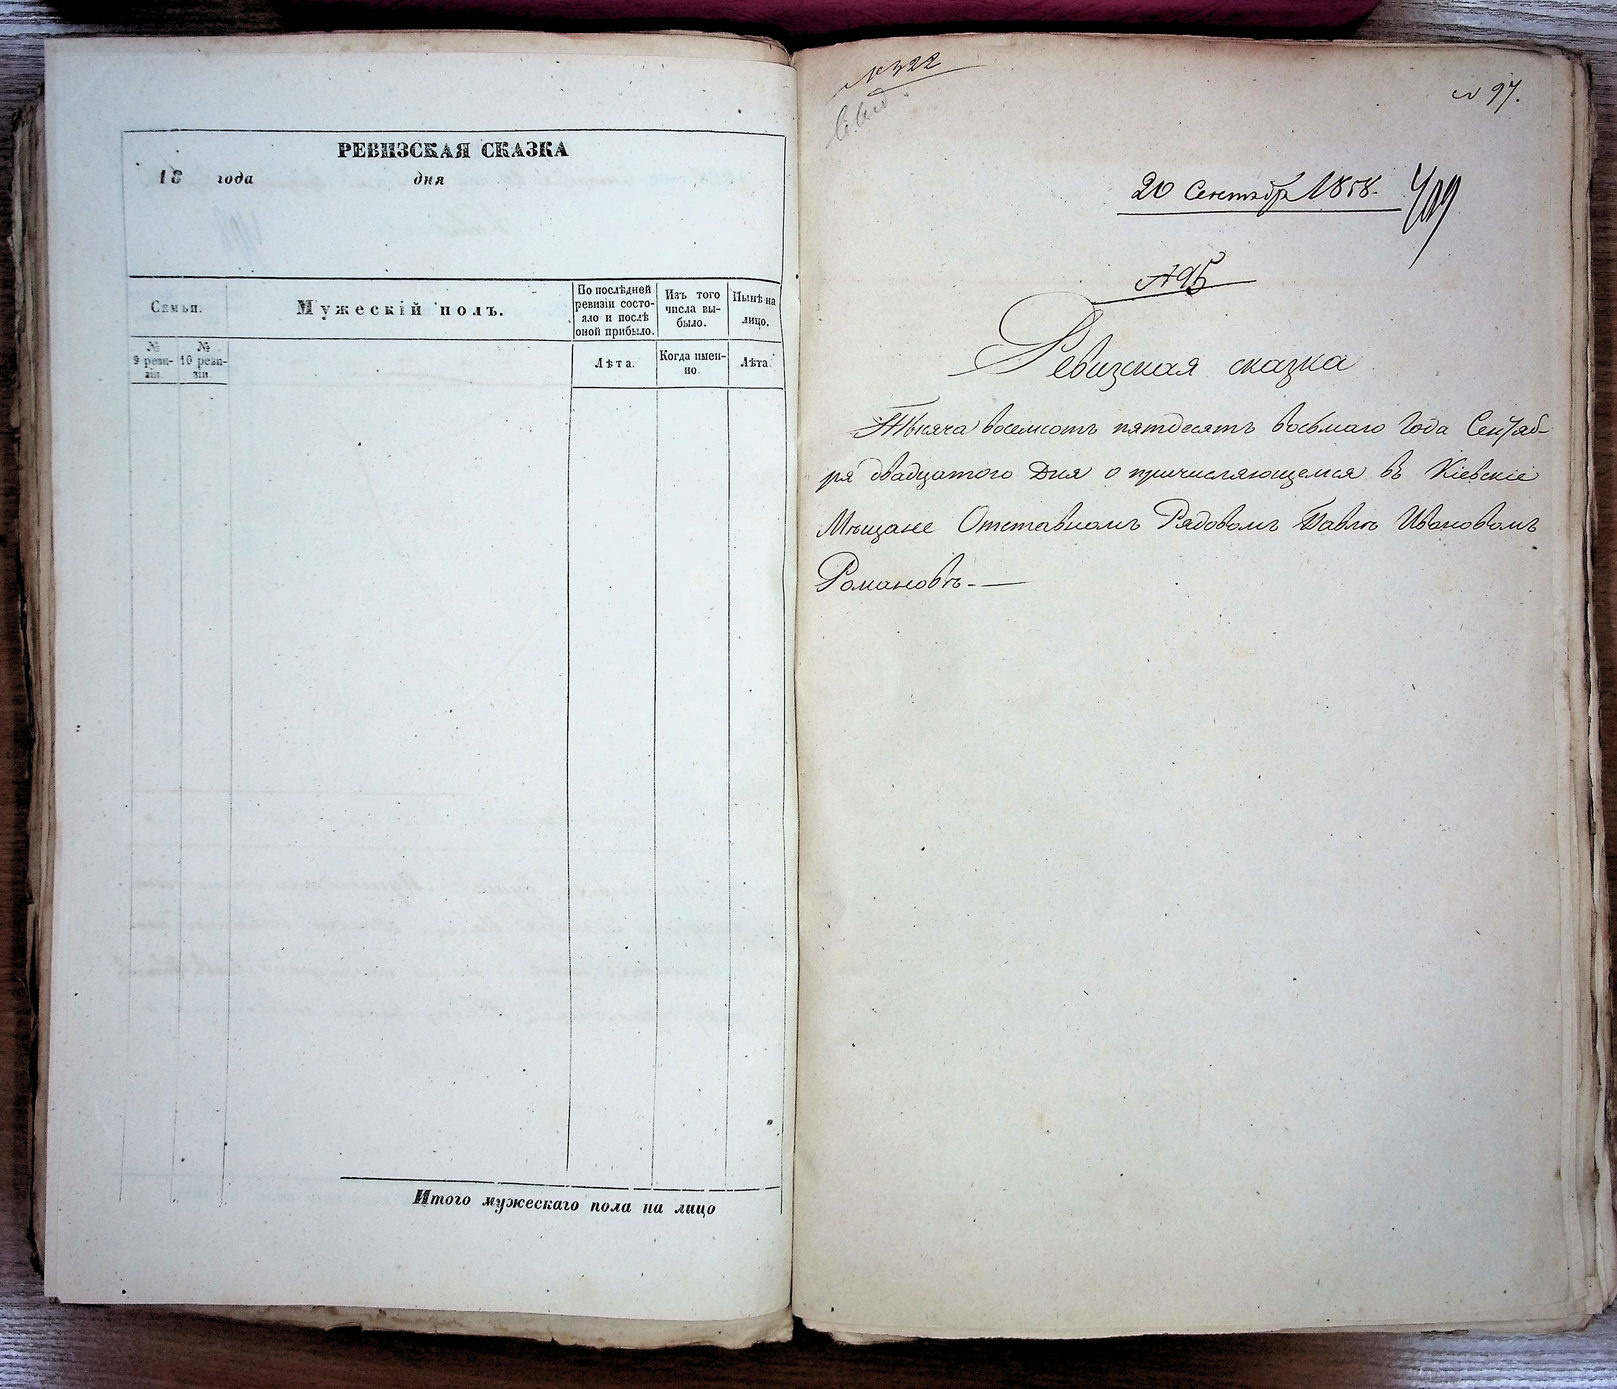 РЕВИЗСКАЯ СКАЗКА
18 года дня
Семьи.
Мужескій полъ.
По послѣдней ревизіи состояло и послѣ оной прибыло.
Изъ того числа выбыло.
Нынѣ на лицо.
№ 9 ревизіи.
№ 10 ревизіи.
Лѣта.
Когда именно.
Лѣта.
Итого мужескаго пола на лицо
№ 322
№ 97.
20 Сентября 1858.
409
№ 95
Ревизская сказка
Тысяча восемсотъ пятдесятъ восьмаго Года Сентяб-
ря двадцатого Дня о причисляющемся въ Кіевскіе
Мѣщане Отставномъ Рядовомъ Павлѣ Ивановомъ
Романовѣ.—